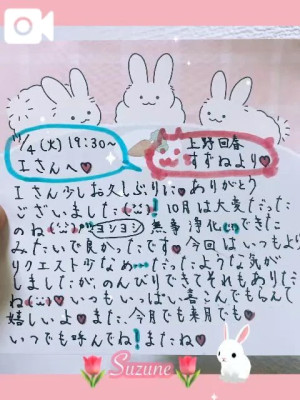 11/4(火)19:30~
Iさんへ♥
上野回春
すずねより♥
Iさん少しお久しぶりに♥ありがとう
ございました(¨)!10月は大変だった
のね(¨)ヨシヨシ 無事浄化できた
みたいで良かったです♥今回はいつもより
リクエスト少なめ…だったような気が
しましたが、のんびりできてそれもありだ
ね(¨)♥いつもいっぱい喜こんでもらえて
嬉しいよ♥また、今月でも来月でも♥
いつでも呼んでね!またね♥
Suzune♥